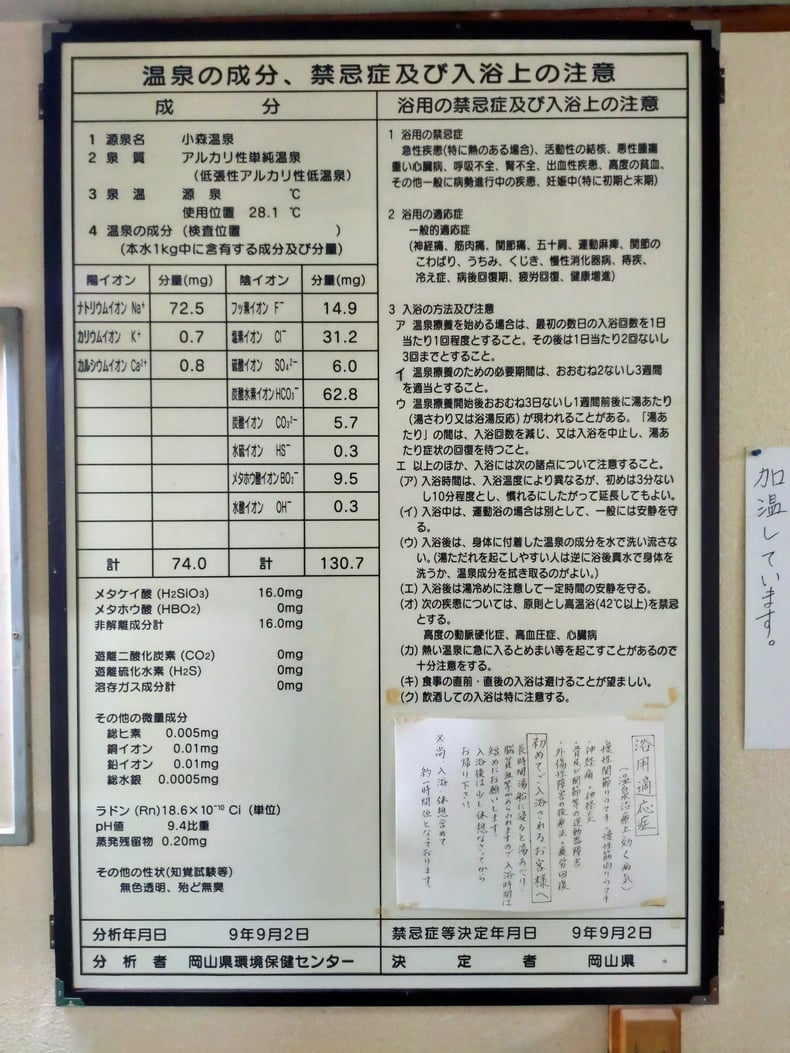 温泉の成分、禁忌症及び入浴上の注意
成 分
1 源泉名 小森温泉
2 泉 質 アルカリ性単純温泉
(低張性アルカリ性低温泉)
3 泉 温 源 泉 ℃
使用位置 28.1 ℃
4 温泉の成分 (検査位置 )
(本水1kg中に含有する成分及び分量)
陽イオン 分量(mg) 陰イオン 分量(mg)
ナトリウムイオン Na⁺ 72.5 フッ素イオン F⁻ 14.9
カリウムイオン K⁺ 0.7 塩素イオン Cl⁻ 31.2
カルシウムイオン Ca²⁺ 0.8 硫酸イオン SO₄²⁻ 6.0
炭酸水素イオン HCO₃⁻ 62.8
炭酸イオン CO₃²⁻ 5.7
水硫イオン HS⁻ 0.3
メタホウ酸イオン BO₂⁻ 9.5
水酸イオン OH⁻ 0.3
計 74.0 計 130.7
メタケイ酸 (H₂SiO₃) 16.0mg
メタホウ酸 (HBO₂) 0mg
非解離成分計 16.0mg
遊離二酸化炭素 (CO₂) 0mg
遊離硫化水素 (H₂S) 0mg
溶存ガス成分計 0mg
その他の微量成分
総ヒ素 0.005mg
銅イオン 0.01mg
鉛イオン 0.01mg
総水銀 0.0005mg
ラドン (Rn)18.6×10⁻¹⁰ Ci (単位)
pH値 9.4比重
蒸発残留物 0.20mg
その他の性状(知覚試験等)
無色透明、殆ど無臭
分析年月日 9年9月2日
分析者 岡山県環境保健センター
浴用の禁忌症及び入浴上の注意
1 浴用の禁忌症
急性疾患(特に熱のある場合)、活動性の結核、悪性腫瘍
重い心臓病、呼吸不全、腎不全、出血性疾患、高度の貧血、
その他一般に病勢進行中の疾患、妊娠中(特に初期と末期)
2 浴用の適応症
一般的適応症
(神経痛、筋肉痛、関節痛、五十肩、運動麻痺、関節の
こわばり、うちみ、くじき、慢性消化器病、痔疾、
冷え症、病後回復期、疲労回復、健康増進)
3 入浴の方法及び注意
ア 温泉療養を始める場合は、最初の数日の入浴回数を1日
当たり1回程度とすること。その後は1日当たり2回ないし
3回までとすること。
イ 温泉療養のための必要期間は、おおむね2ないし3週間
を適当とすること。
ウ 温泉療養開始後おおむね3日ないし1週間前後に湯あたり
(湯さわり又は浴湯反応)が現われることがある。「湯あ
たり」の間は、入浴回数を減じ、又は入浴を中止し、湯あ
たり症状の回復を待つこと。
エ 以上のほか、入浴には次の諸点について注意すること。
(ア) 入浴時間は、入浴温度により異なるが、初めは3分ない
し10分程度とし、慣れるにしたがって延長してもよい。
(イ) 入浴中は、運動浴の場合は別として、一般には安静を守
る。
(ウ) 入浴後は、身体に付着した温泉の成分を水で洗い流さな
い。(湯ただれを起こしやすい人は逆に浴後真水で身体を
洗うか、温泉成分を拭き取るのがよい。)
(エ) 入浴後は湯冷めに注意して一定時間の安静を守る。
(オ) 次の疾患については、原則とし高温浴(42℃以上)を禁忌
とする。
高度の動脈硬化症、高血圧症、心臓病
(カ) 熱い温泉に急に入るとめまい等を起こすことがあるので
十分注意をする。
(キ) 食事の直前・直後の入浴は避けることが望ましい。
(ク) 飲酒しての入浴は特に注意する。
浴用適応症
(温泉治療上効く病気)
・慢性関節リウマチ・慢性筋肉リウマチ
・神経痛・神経炎
・骨及び関節等の運動器障害
・外傷性障害の後療法・疲労回復
初めてご入浴されるお客様へ
長時間湯船に浸ると湯あたり、
脳貧血等があらわれますので入浴時間は
短めにお願いします。
入浴後は少し休憩なさってから
お帰り下さい。
※尚 入浴・休憩含めて
約一時間位となっております。
禁忌症等決定年月日 9年9月2日
決定者 岡山県
加温しています。